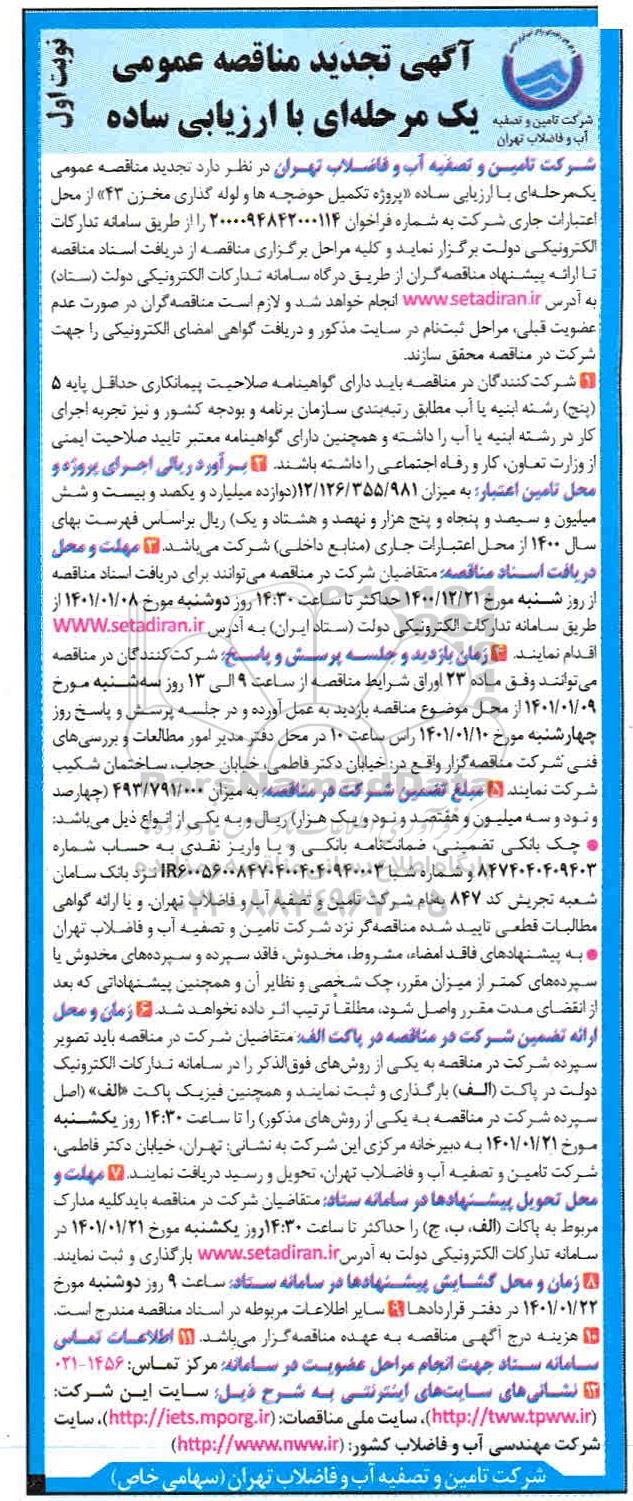 نوبت اول
آگهی تجدید مناقصه عمومی
یک مرحله‌ای با ارزیابی ساده
شرکت تامین و تصفیه
آب و فاضلاب تهران
شرکت تامین و تصفیه آب و فاضلاب تهران در نظر دارد تجدید مناقصه عمومی
یک‌مرحله‌ای با ارزیابی ساده «پروژه تکمیل حوضچه ها و لوله گذاری مخزن ۴۳» از محل
اعتبارات جاری شرکت به شماره فراخوان ۲۰۰۰۰۹۴۸۴۲۰۰۰۱۱۴ را از طریق سامانه تدارکات
الکترونیکی دولت برگزار نماید و کلیه مراحل برگزاری مناقصه از دریافت اسناد مناقصه
تا ارائه پیشنهاد مناقصه‌گران از طریق درگاه سامانه تدارکات الکترونیکی دولت (ستاد)
به آدرس www.setadiran.ir انجام خواهد شد و لازم است مناقصه‌گران در صورت عدم
عضویت قبلی، مراحل ثبت‌نام در سایت مذکور و دریافت گواهی امضای الکترونیکی را جهت
شرکت در مناقصه محقق سازند.
۱ شرکت‌کنندگان در مناقصه باید دارای گواهینامه صلاحیت پیمانکاری حداقل پایه ۵
(پنج) رشته ابنیه یا آب مطابق رتبه‌بندی سازمان برنامه و بودجه کشور و نیز تجربه اجرای
کار در رشته ابنیه یا آب را داشته و همچنین دارای گواهینامه معتبر تایید صلاحیت ایمنی
از وزارت تعاون، کار و رفاه اجتماعی را داشته باشند. ۲ برآورد ریالی اجرای پروژه و
محل تامین اعتبار: به میزان ۱۲/۱۲۶/۳۵۵/۹۸۱(دوازده میلیارد و یکصد و بیست و شش
میلیون و سیصد و پنجاه و پنج هزار و نهصد و هشتاد و یک) ریال براساس فهرست بهای
سال ۱۴۰۰ از محل اعتبارات جاری (منابع داخلی) شرکت می‌باشد. ۳ مهلت و محل
دریافت اسناد مناقصه: متقاضیان شرکت در مناقصه می‌توانند برای دریافت اسناد مناقصه
از روز شنبه مورخ ۱۴۰۰/۱۲/۲۱ حداکثر تا ساعت ۱۴:۳۰ روز دوشنبه مورخ ۱۴۰۱/۰۱/۰۸ از
طریق سامانه تدارکات الکترونیکی دولت (ستاد ایران) به آدرس WWW.setadiran.ir
اقدام نمایند. ۴ زمان بازدید و جلسه پرسش و پاسخ: شرکت‌کنندگان در مناقصه
می‌توانند وفق ماده ۲۳ اوراق شرایط مناقصه از ساعت ۹ الی ۱۳ روز سه‌شنبه مورخ
۱۴۰۱/۰۱/۰۹ از محل موضوع مناقصه بازدید به عمل آورده و در جلسه پرسش و پاسخ روز
چهارشنبه مورخ ۱۴۰۱/۰۱/۱۰ راس ساعت ۱۰ در محل دفتر مدیر امور مطالعات و بررسی‌های
فنی شرکت مناقصه‌گزار واقع در: خیابان دکتر فاطمی، خیابان حجاب، ساختمان شکیب
شرکت نمایند. ۵ مبلغ تضمین شرکت در مناقصه: به میزان ۴۹۳/۷۹۱/۰۰۰ (چهارصد
و نود و سه میلیون و هفتصد و نود و یک هزار) ریال و به یکی از انواع ذیل می‌باشد:
● چک بانکی تضمینی، ضمانت‌نامه بانکی و یا واریز نقدی به حساب شماره
۸۴۷۴۰۴۰۴۰۹۴۰۳ و شماره شبا نزد بانک سامان
شعبه تجریش کد ۸۴۷ بنام شرکت تامین و تصفیه آب و فاضلاب تهران. و یا ارائه گواهی
مطالبات قطعی تایید شده مناقصه‌گر نزد شرکت تامین و تصفیه آب و فاضلاب تهران
● به پیشنهادهای فاقد امضاء، مشروط، مخدوش، فاقد سپرده و سپرده‌های مخدوش یا
سپرده‌های کمتر از میزان مقرر، چک شخصی و نظایر آن و همچنین پیشنهاداتی که بعد
از انقضای مدت مقرر واصل شود، مطلقاً ترتیب اثر داده نخواهد شد. ۶ زمان و محل
ارائه تضمین شرکت در مناقصه در پاکت الف: متقاضیان شرکت در مناقصه باید تصویر
سپرده شرکت در مناقصه به یکی از روش‌های فوق‌الذکر را در سامانه تدارکات الکترونیک
دولت در پاکت (الف) بارگذاری و ثبت نمایند و همچنین فیزیک پاکت «الف» (اصل
سپرده شرکت در مناقصه به یکی از روش‌های مذکور) را تا ساعت ۱۴:۳۰ روز یکشنبه
مورخ ۱۴۰۱/۰۱/۲۱ به دبیرخانه مرکزی این شرکت به نشانی: تهران، خیابان دکتر فاطمی،
شرکت تامین و تصفیه آب و فاضلاب تهران، تحویل و رسید دریافت نمایند. ۷ مهلت و
محل تحویل پیشنهادها در سامانه ستاد: متقاضیان شرکت در مناقصه باید کلیه مدارک
مربوط به پاکات (الف، ب، ج) را حداکثر تا ساعت ۱۴:۳۰روز یکشنبه مورخ ۱۴۰۱/۰۱/۲۱ در
سامانه تدارکات الکترونیکی دولت به آدرس www.setadiran.ir بارگذاری و ثبت نمایند.
۸ زمان و محل گشایش پیشنهادها در سامانه ستاد: ساعت ۹ روز دوشنبه مورخ
۱۴۰۱/۰۱/۲۲ در دفتر قراردادها ۹ سایر اطلاعات مربوطه در اسناد مناقصه مندرج است.
۱۰ هزینه درج آگهی مناقصه به عهده مناقصه‌گزار می‌باشد. ۱۱ اطلاعات تماس
سامانه ستاد جهت انجام مراحل عضویت در سامانه: مرکز تماس: ۱۴۵۶-۰۲۱
۱۲ نشانی‌های سایت‌های اینترنتی به شرح ذیل: سایت این شرکت:
(http://tww.tpww.ir)، سایت ملی مناقصات: (http://iets.mporg.ir)، سایت
شرکت مهندسی آب و فاضلاب کشور: (http://www.nww.ir)
شرکت تامین و تصفیه آب و فاضلاب تهران (سهامی خاص)
ParsNamadData
۰۲۱-۸۸۳۴۹۶۷۰-۵